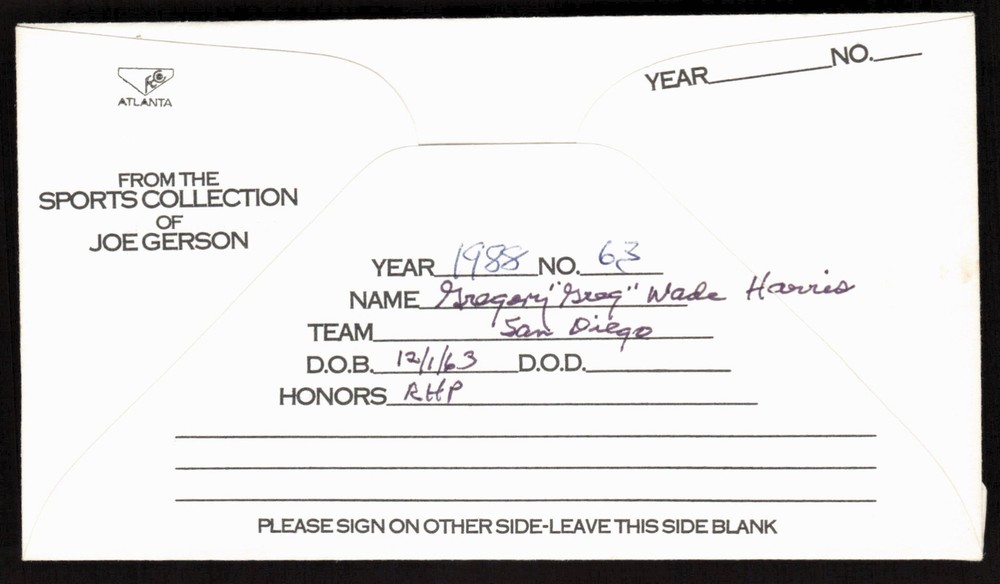 YEAR_____NO.___
ATLANTA
FROM THE
SPORTS COLLECTION
OF
JOE GERSON
YEAR 1988 NO. 63
NAME Gregory "Greg" Wade Harris
TEAM San Diego
D.O.B. 12/1/63 D.O.D.
HONORS RHP
PLEASE SIGN ON OTHER SIDE-LEAVE THIS SIDE BLANK